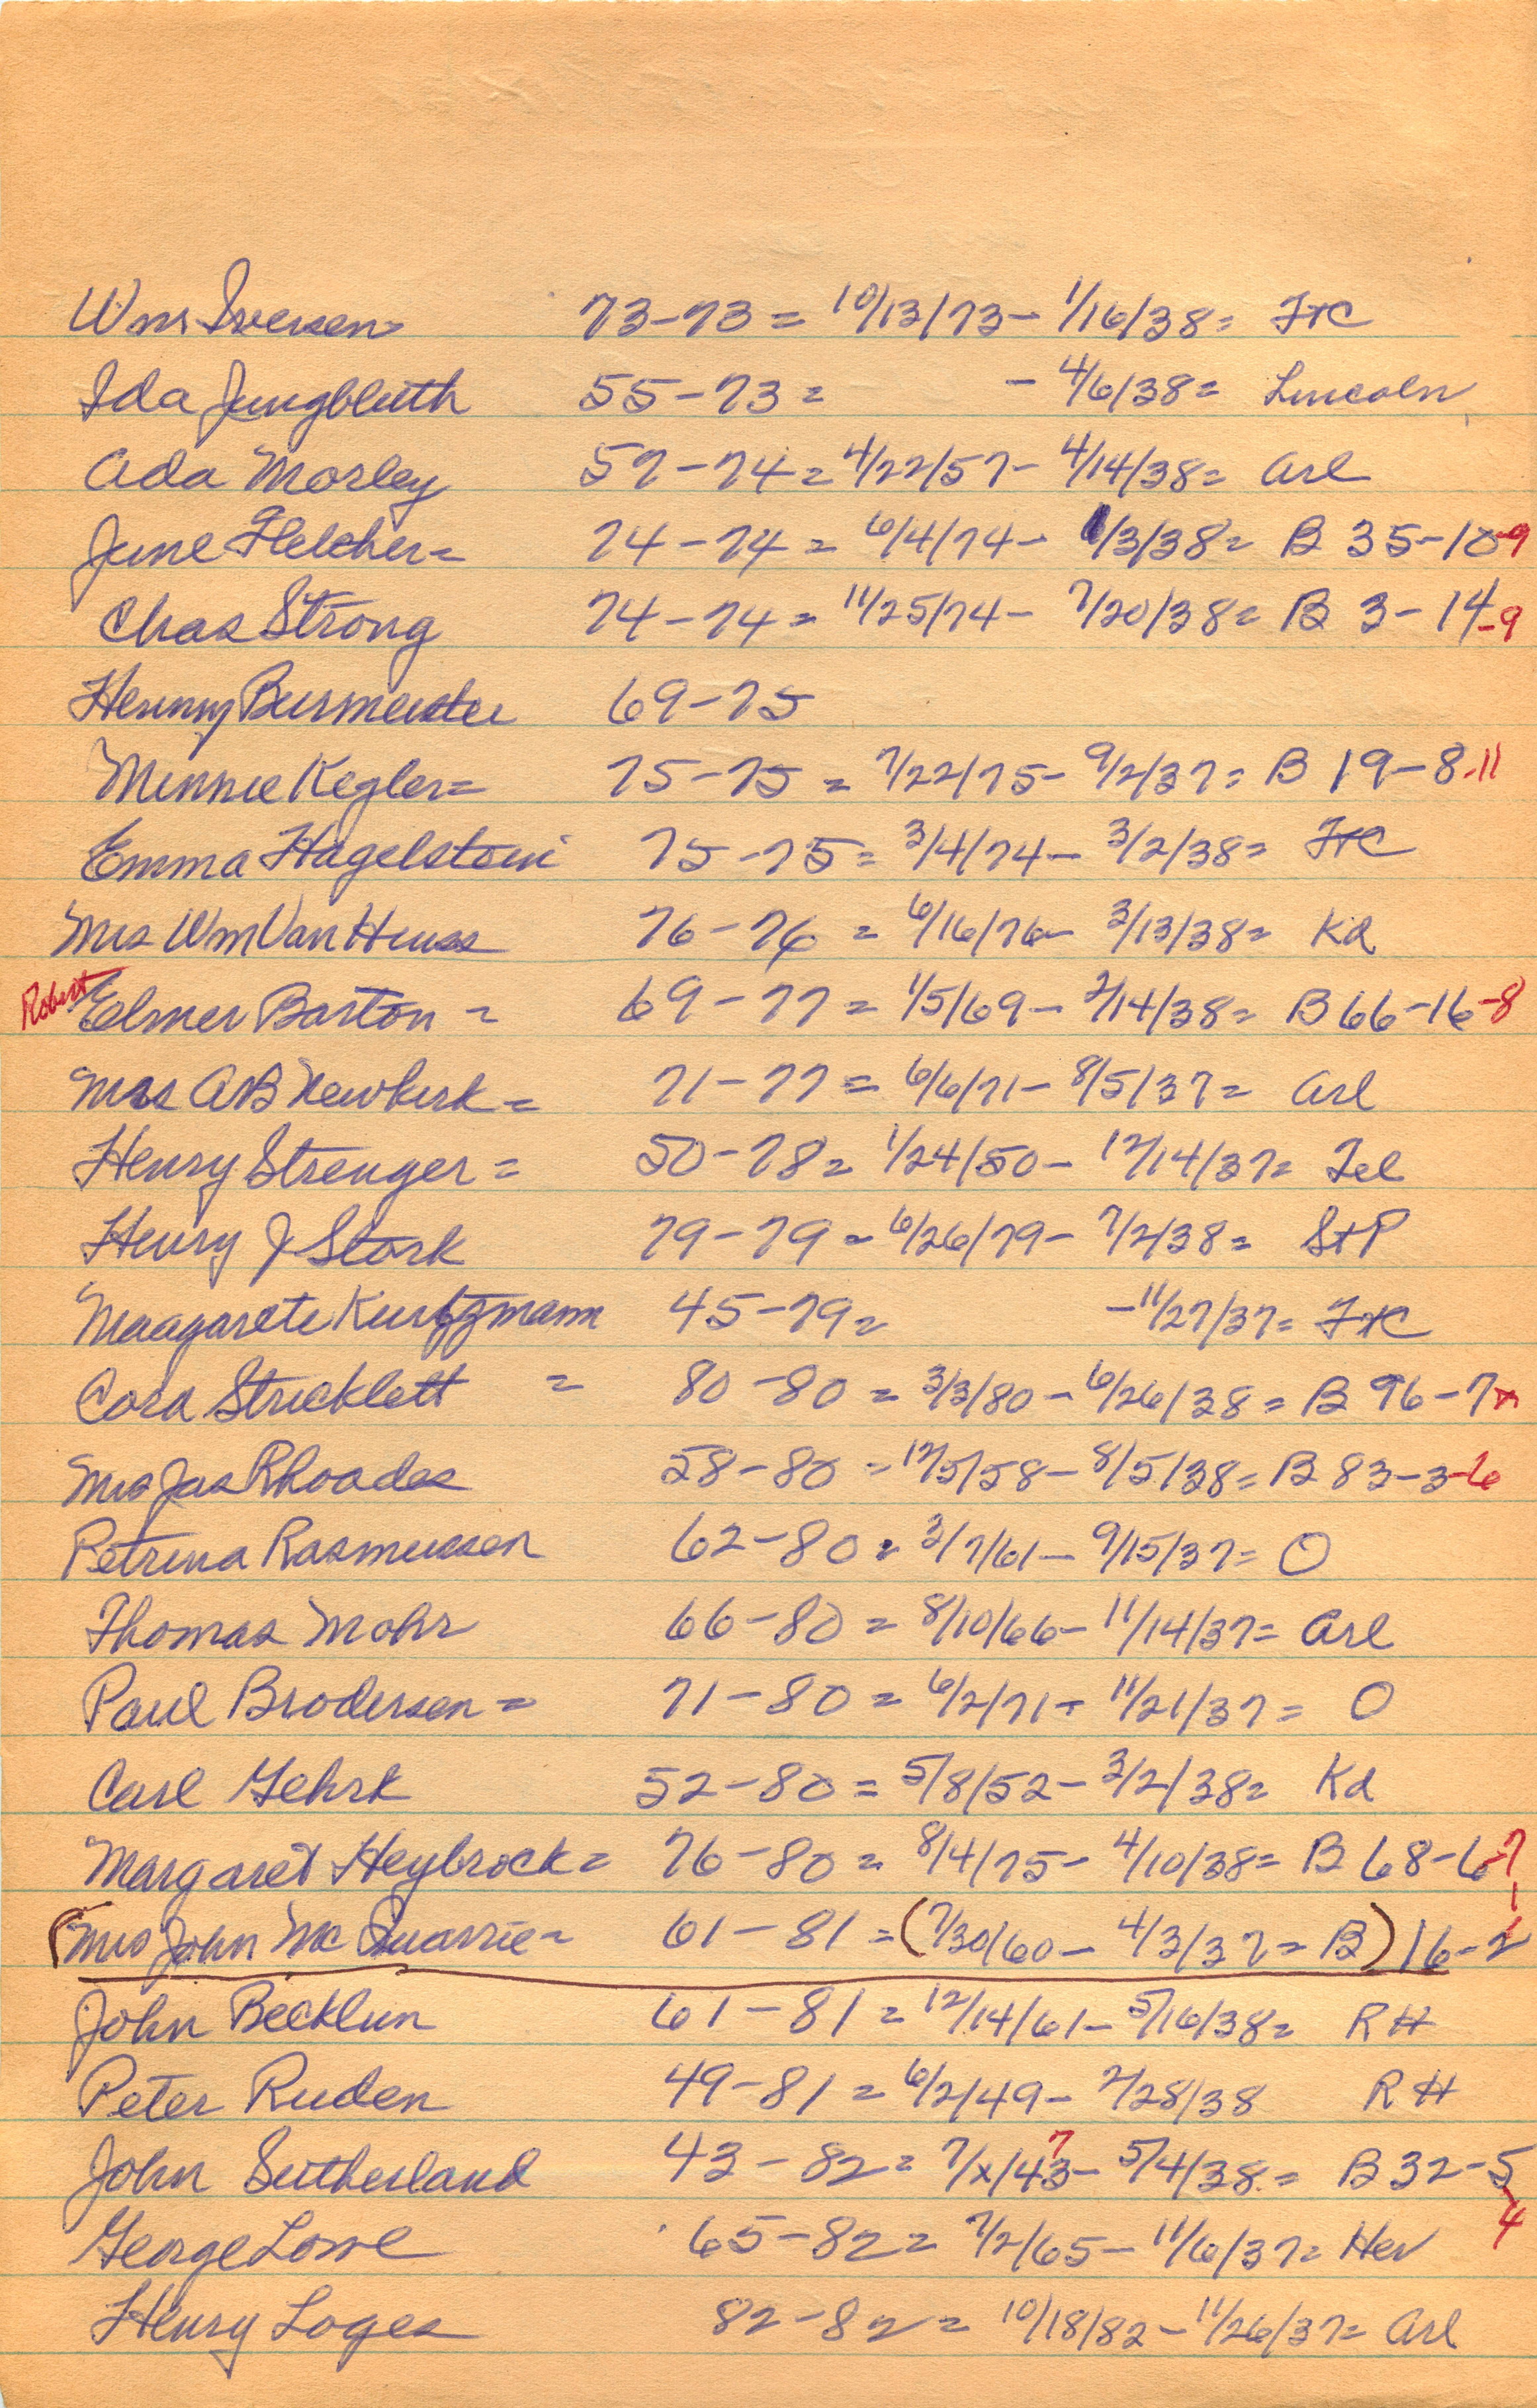 Wm Iversen 73-73 = 10/13/73 - 1/16/38 = FtC
Ida Jungbluth 55-73 = - 4/6/38 = Lincoln
Ada Morley 57-74 = 4/22/57 - 4/14/38 = Arl
June Fletcher = 74-74 = 6/4/74 - 1/3/38 = B 35-10-9
Chas Strong 74-74 = 11/25/74 - 7/20/38 = B 3-14-9
Henny Burmeister 69-75
Minnie Kegler = 75-75 = 7/22/75 - 9/2/37 = B 19-8-11
Emma Hagelstein 75-75 = 3/4/74 - 3/2/38 = FtC
Mrs Wm Van Huss 76-76 = 6/16/76 - 3/13/38 = Kd
Robert Elmer Barton = 69-77 = 1/5/69 - 2/14/38 = B 66-16-8
Mrs AB Newkirk = 71-77 = 6/6/71 - 8/5/37 = Arl
Henry Strenger = 50-78 = 1/24/50 - 12/14/37 = Tel
Henry J Stork 79-79 = 6/26/79 - 7/2/38 = StP
Maagarete Kurtzmann 45-79 = - 11/27/37 = FtC
Cora Stricklett = 80-80 = 3/3/80 - 6/26/38 = B 96-7x
Mrs Jas Rhoades 58-80 = 12/5/58 - 8/5/38 = B 83-3-6
Petrina Rasmussen 62-80 = 3/7/61 - 9/15/37 = O
Thomas Mohr 66-80 = 8/10/66 - 11/14/37 = Arl
Paul Brodersen = 71-80 = 6/2/71 - 11/21/37 = O
Carl Gehrk 52-80 = 5/8/52 - 3/2/38 = Kd
Margaret Heybrock = 76-80 = 8/4/75 - 4/10/38 = B 68-6-7
(Mrs John McQuarrie = 61-81 = (7/30/60 - 4/3/37 = B) 16-2
John Becklun 61-81 = 12/14/61 - 5/16/38 = RH
Peter Ruden 49-81 = 6/2/49 - 2/28/38 RH
John Sutherland 43-82 = 7/x/43 7 - 5/4/38 = B 32-5 4
George Lowe 65-82 = 7/2/65 - 11/6/37 = Her
Henry Loges 82-82 = 10/18/82 - 11/26/37 = Arl